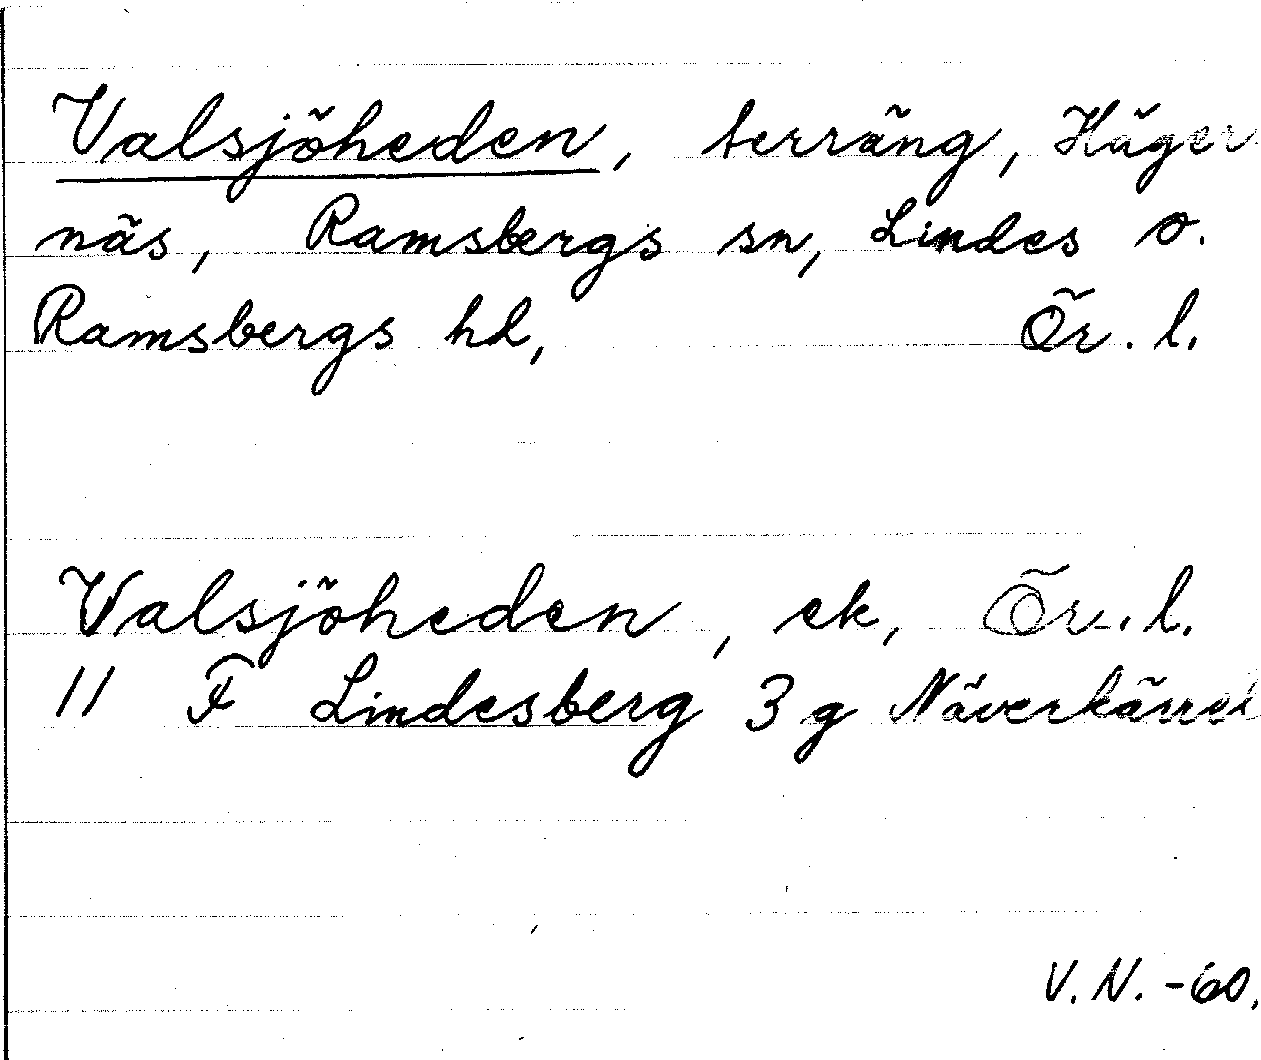 Valsjöheden, terräng, Häger
näs, Ramsbergs sn, Lindes o.
Ramsbergs hd, Ör. l.
Valsjöheden, ek, Ör. l.
11 F Lindesberg 3 g Näverkärret
V. N. -60.